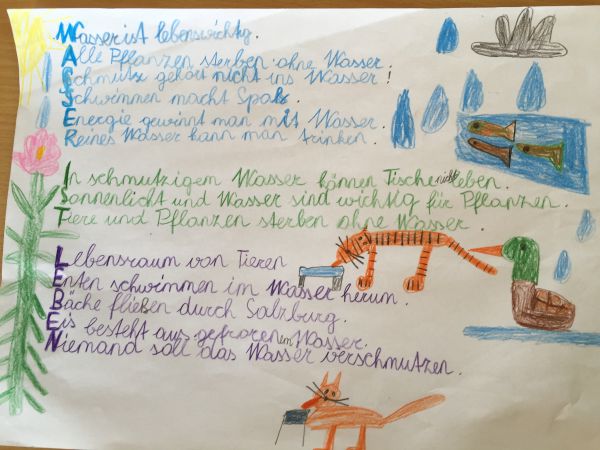 Wasser ist lebenswichtig.
Alle Pflanzen sterben ohne Wasser.
Schmutz gehört nicht ins Wasser!
Schwimmen macht Spaß.
Energie gewinnt man mit Wasser.
Reines Wasser kann man trinken.
In schmutzigem Wasser können Fische nicht leben.
Sonnenlicht und Wasser sind wichtig für Pflanzen.
Tiere und Pflanzen sterben ohne Wasser.
Lebensraum von Tieren
Enten schwimmen im Wasser herum.
Bäche fließen durch Salzburg.
Eis besteht aus gefrorenem Wasser.
Niemand soll das Wasser verschmutzen.